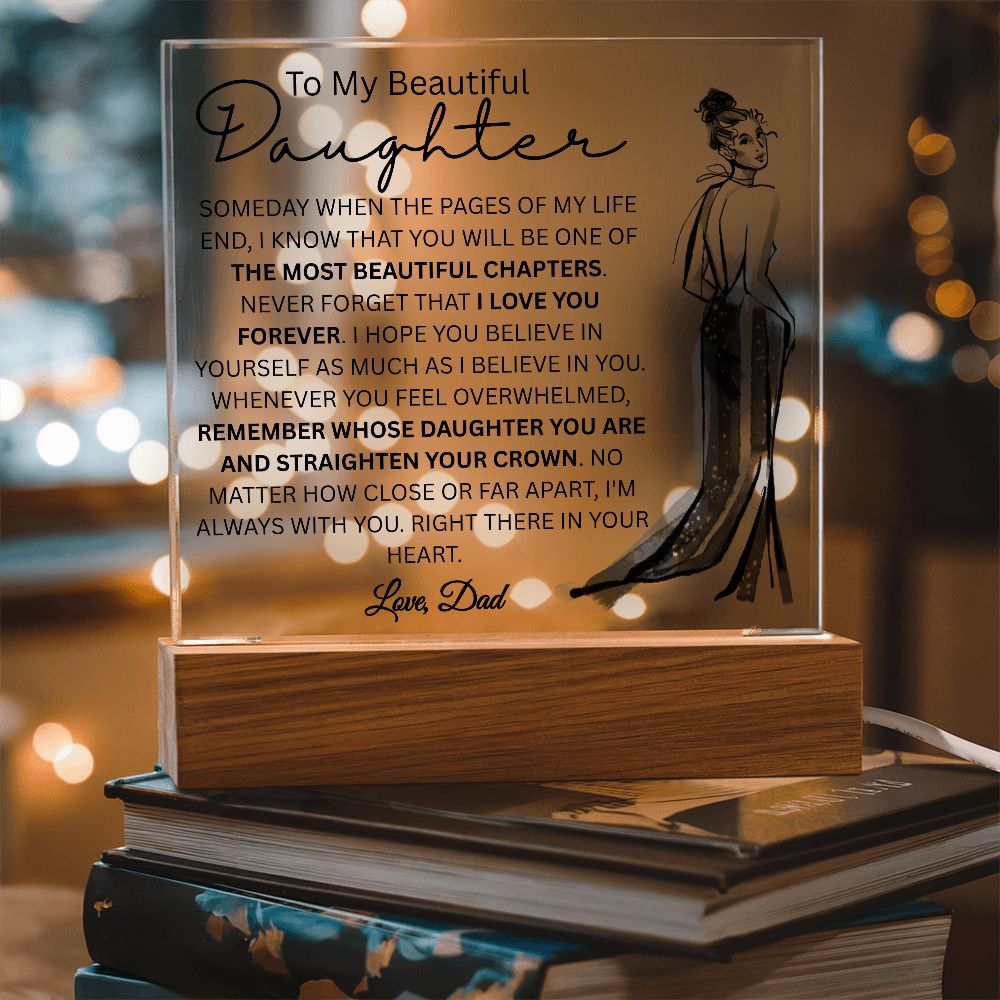 To My Beautiful
Daughter
SOMEDAY WHEN THE PAGES OF MY LIFE
END, I KNOW THAT YOU WILL BE ONE OF
THE MOST BEAUTIFUL CHAPTERS.
NEVER FORGET THAT I LOVE YOU
FOREVER. I HOPE YOU BELIEVE IN
YOURSELF AS MUCH AS I BELIEVE IN YOU.
WHENEVER YOU FEEL OVERWHELMED,
REMEMBER WHOSE DAUGHTER YOU ARE
AND STRAIGHTEN YOUR CROWN. NO
MATTER HOW CLOSE OR FAR APART, I'M
ALWAYS WITH YOU. RIGHT THERE IN YOUR
HEART.
Love, Dad